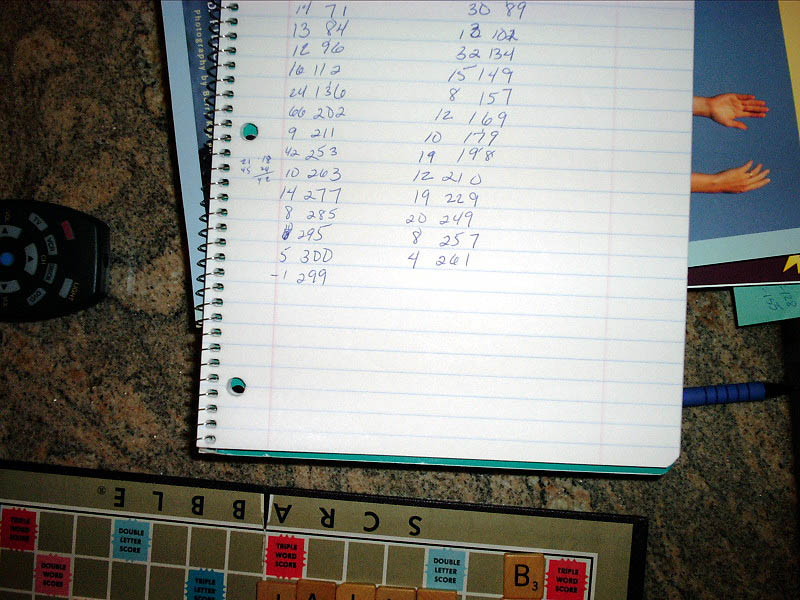 14 71 30 89
13 84 13 102
12 96 32 134
16 112 15 149
24 136 8 157
66 202 12 169
9 211 10 179
42 253 19 198
10 263 12 210
14 277 19 229
8 285 20 249
295 8 257
5 300 4 261
-1 299
Photography by
SCRABBLE®
TRIPLE WORD SCORE
DOUBLE LETTER SCORE
TRIPLE WORD SCORE
DOUBLE LETTER SCORE
TRIPLE WORD SCORE
DOUBLE WORD SCORE
TRIPLE LETTER SCORE
B3